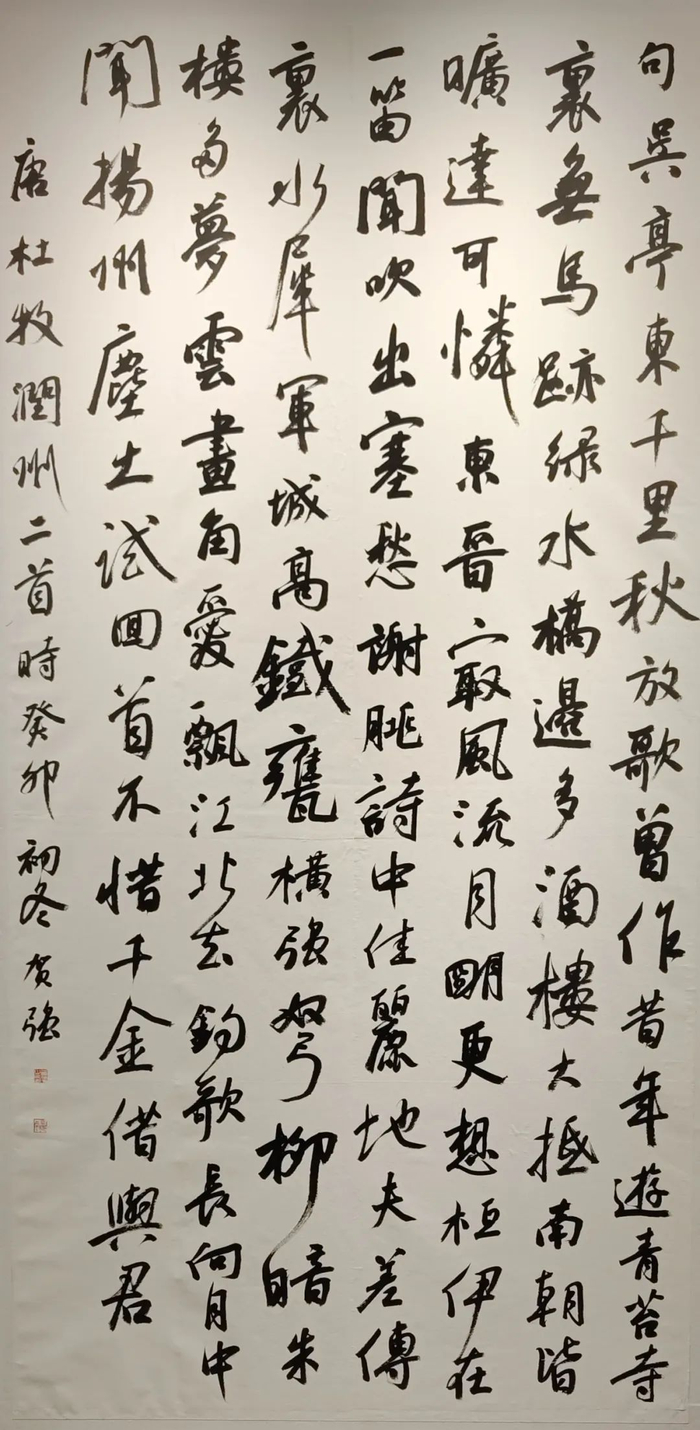 句吳亭東千里秋放歌曾作昔年遊青苔寺
裏無馬跡緑水橋邊多酒樓大抵南朝皆
曠達可憐東晉最風流月明更想桓伊在
一笛聞吹出塞愁謝朓詩中佳麗地夫差傳
裏水犀軍城高鐵甕橫强弩柳暗朱
樓多夢雲畫角愛飄江北去釣歌長向月中
聞揚州塵土試回首不惜千金借與君
唐杜牧潤州二首時癸卯初冬賀强